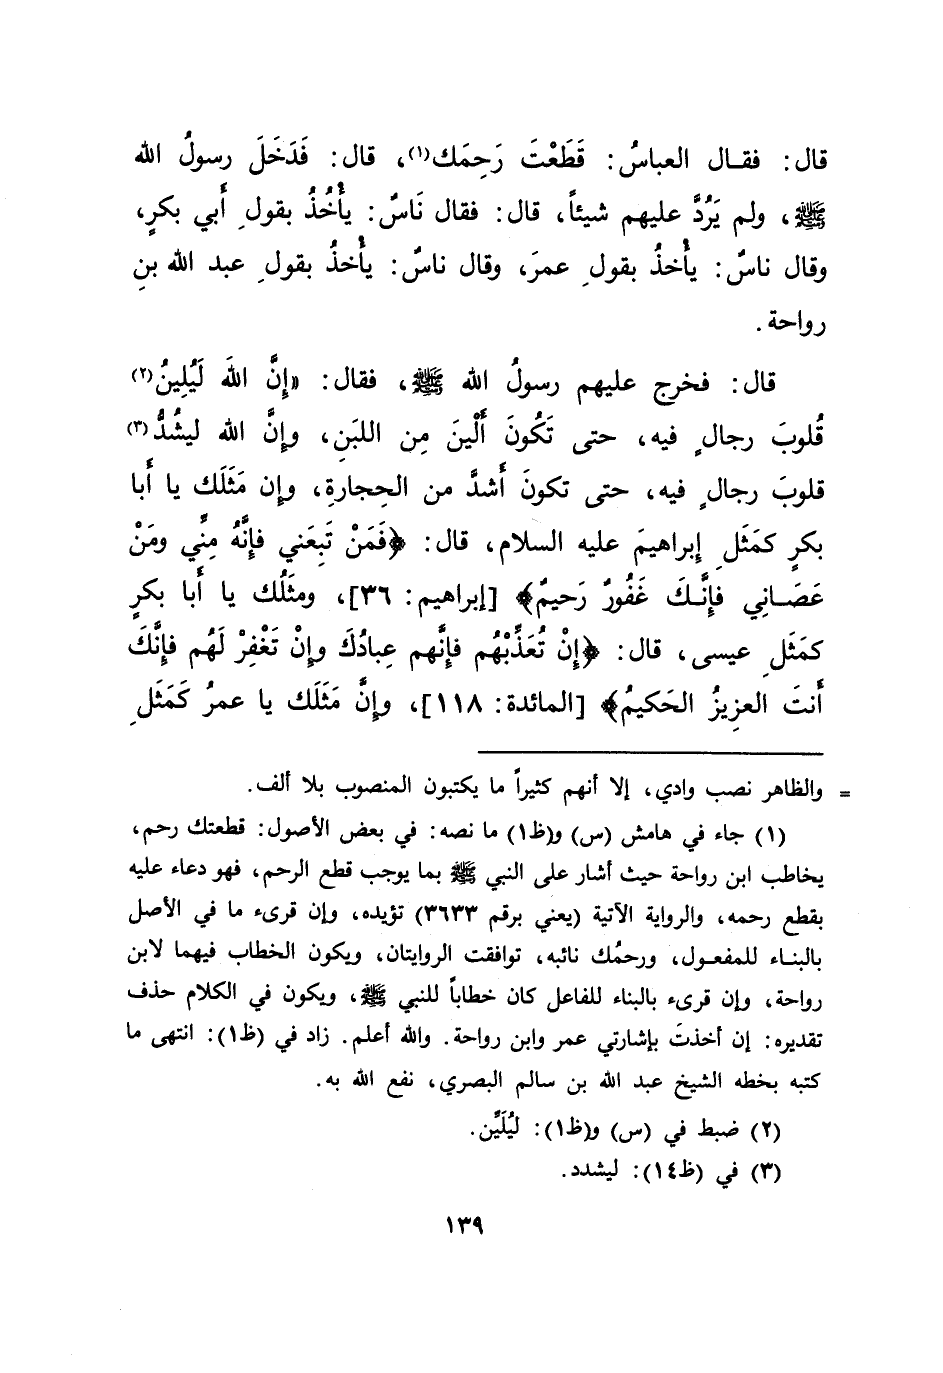 قال: فقـال العباسُ: قَطَعْتَ رَحِمَك(١)، قال: فَدَخَلَ رسولُ الله
ﷺ، ولم يَرُدَّ عليهم شيئاً، قال: فقال نَاسٌ: يأْخُذُ بقولِ أَبي بكرٍ،
وقال ناسٌ: يأْخذُ بقولِ عمرَ، وقال ناسٌ: يأْخذُ بقولِ عبد الله بنِ
رواحة.
قال: فخرج عليهم رسولُ الله ﷺ، فقال: «إِنَّ اللهَ لَيُلِينُ(٢)
قُلوبَ رجالٍ فيه، حتى تَكُونَ أَلْينَ مِن اللبَنِ، وإِنَّ الله ليشُدُّ(٣)
قلوبَ رجالٍ فيه، حتى تكونَ أَشدَّ من الحِجارةِ، وإِن مَثَلَك يا أَبا
بكرٍ كمَثَلِ إِبراهيمَ عليه السلام، قال: ﴿فَمَنْ تَبِعَني فإِنَّهُ مِنِّي ومَنْ
عَصَـانِي فإِنَّـكَ غَفُورٌ رَحيمٌ﴾ [إبراهيم: ٣٦]، ومثَلُك يا أَبا بكرٍ
كمَثَلِ عيسى، قال: ﴿إِنْ تُعَذِّبْهُم فإِنَّهم عِبادُكَ وإِنْ تَغْفِرْ لَهُم فإِنَّكَ
أَنتَ العزِيزُ الحَكيمُ﴾ [المائدة: ١١٨]، وإِنَّ مَثَلَك يا عمرُ كَمَثَلِ
= والظاهر نصب وادي، إلا أنهم كثيراً ما يكتبون المنصوب بلا ألف.
(١) جاء في هامش (س) و(ظ١) ما نصه: في بعض الأصول: قطعتك رحم،
يخاطب ابن رواحة حيث أشار على النبي ﷺ بما يوجب قطع الرحم، فهو دعاء عليه
بقطع رحمه، والرواية الآتية (يعني برقم ٣٦٣٣) تؤيده، وإن قرىء ما في الأصل
بالبنـاء للمفعـول، ورحمُك نائبه، توافقت الروايتان، ويكون الخطاب فيهما لابن
رواحة، وإن قرىء بالبناء للفاعل كان خطاباً للنبي ﷺ، ويكون في الكلام حذف
تقديره: إن أخذتَ بإشارتي عمر وابن رواحة. والله أعلم. زاد في (ظ١): انتهى ما
كتبه بخطه الشيخ عبد الله بن سالم البصري، نفع الله به.
(٢) ضبط في (س) و(ظ١): ليُلَيِّن.
(٣) في (ظ١٤): ليشدد.
١٣٩